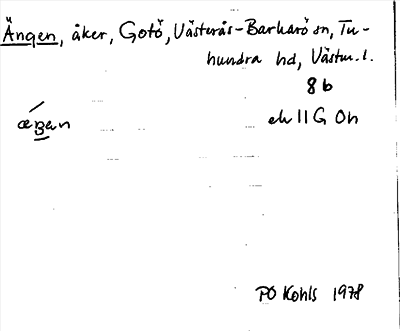 Ängen, åker, Gotö, Västerås-Barkarö sn, Tu-
hundra hd, Västm. l.
8 b
ek 11 G 0h
ǽŋan
PO Kohls 1978